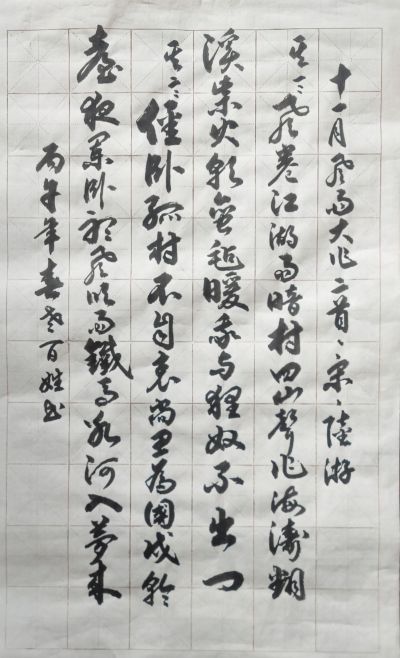 十一月風雨大作二首、宋、陸游
其一風卷江湖雨暗村四山聲作海濤翻
溪柴火軟蠻毡暖我与狸奴不出门
其二僵卧孤村不自哀尚思為國戍輪
臺夜闌卧聽風吹雨鐵馬冰河入夢来
丙午年春老百姓书